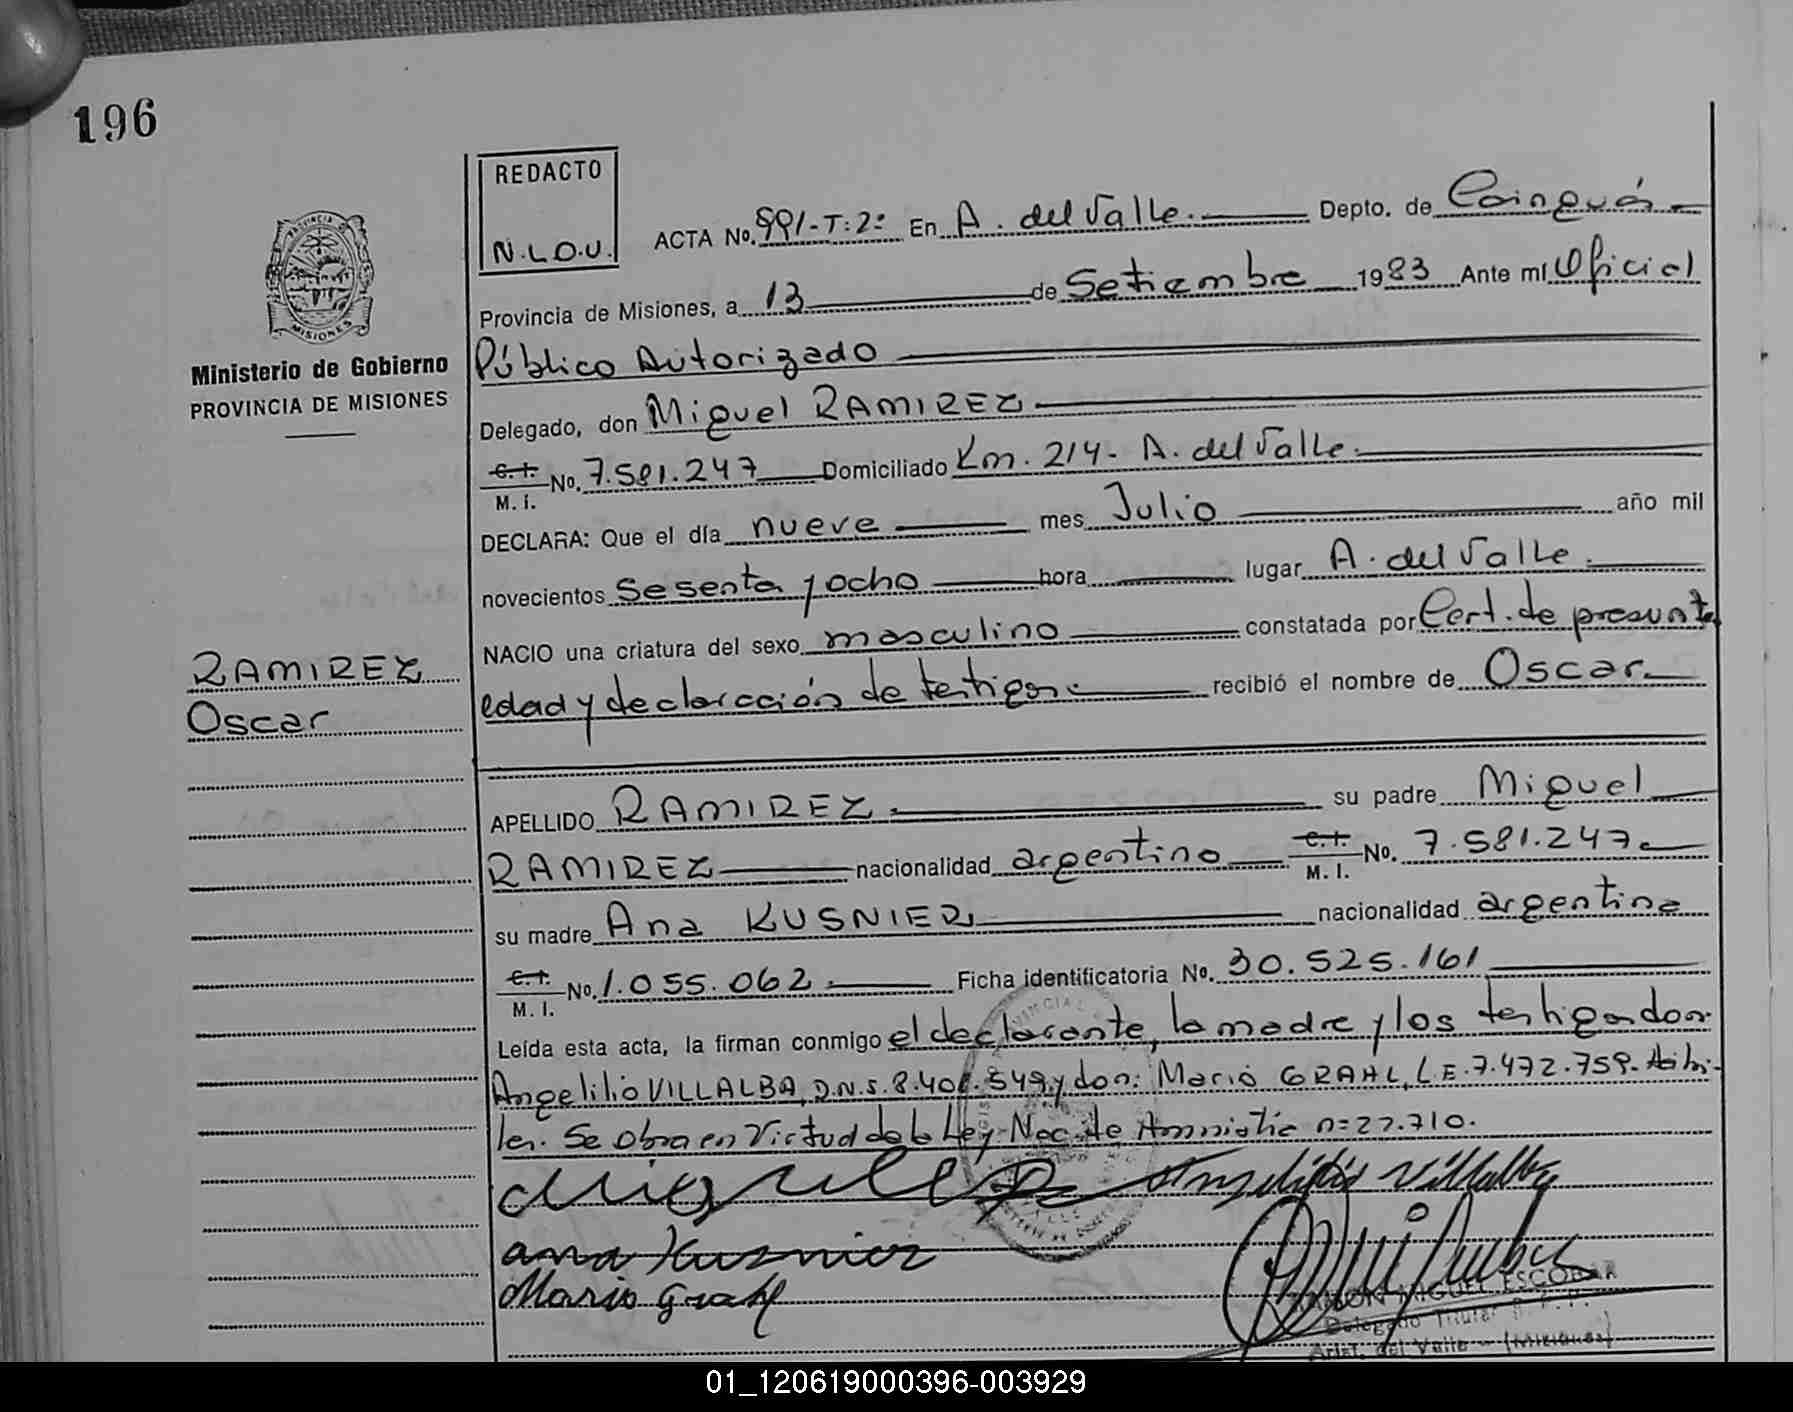 196
REDACTO
N.L.O.U.
PROVINCIA
MISIONES
Ministerio de Gobierno
PROVINCIA DE MISIONES
ACTA No. 991-T:2º En A. del Valle. Depto. de Cainguás
Provincia de Misiones, a 13 de Setiembre 1983 Ante mí Oficial
Público Autorizado
Delegado, don Miguel RAMIREZ
C.I. M.I. No. 7.581.247 Domiciliado Km. 214- A. del Valle.
DECLARA: Que el día nueve mes Julio año mil
novecientos sesenta y ocho hora lugar A. del Valle.
NACIO una criatura del sexo masculino constatada por Cert. de presunta
edad y declaración de testigos. recibió el nombre de Oscar
RAMIREZ
Oscar
APELLIDO RAMIREZ su padre Miguel
RAMIREZ nacionalidad argentino C.I. M.I. No. 7.581.247
su madre Ana KUSNIER nacionalidad argentina
C.I. M.I. No. 1.055.062 Ficha identificatoria No. 30.525.161
Leída esta acta, la firman conmigo el declarante, la madre y los testigos don
Angelilió VILLALBA, D.N.S. 549 y don: Mario GRAHL, L.E. 7.472.759. Hábi-
les. Se obra en Virtud de la Ley Nac. de Amnistia n=22.710.
Miguel R
Villalba
ana Kusnier
Mario Grahl
RAMON MIGUEL ESCOBAR
Delegado Titular
Arist. del Valle - (Misiones)
01_120619000396-003929